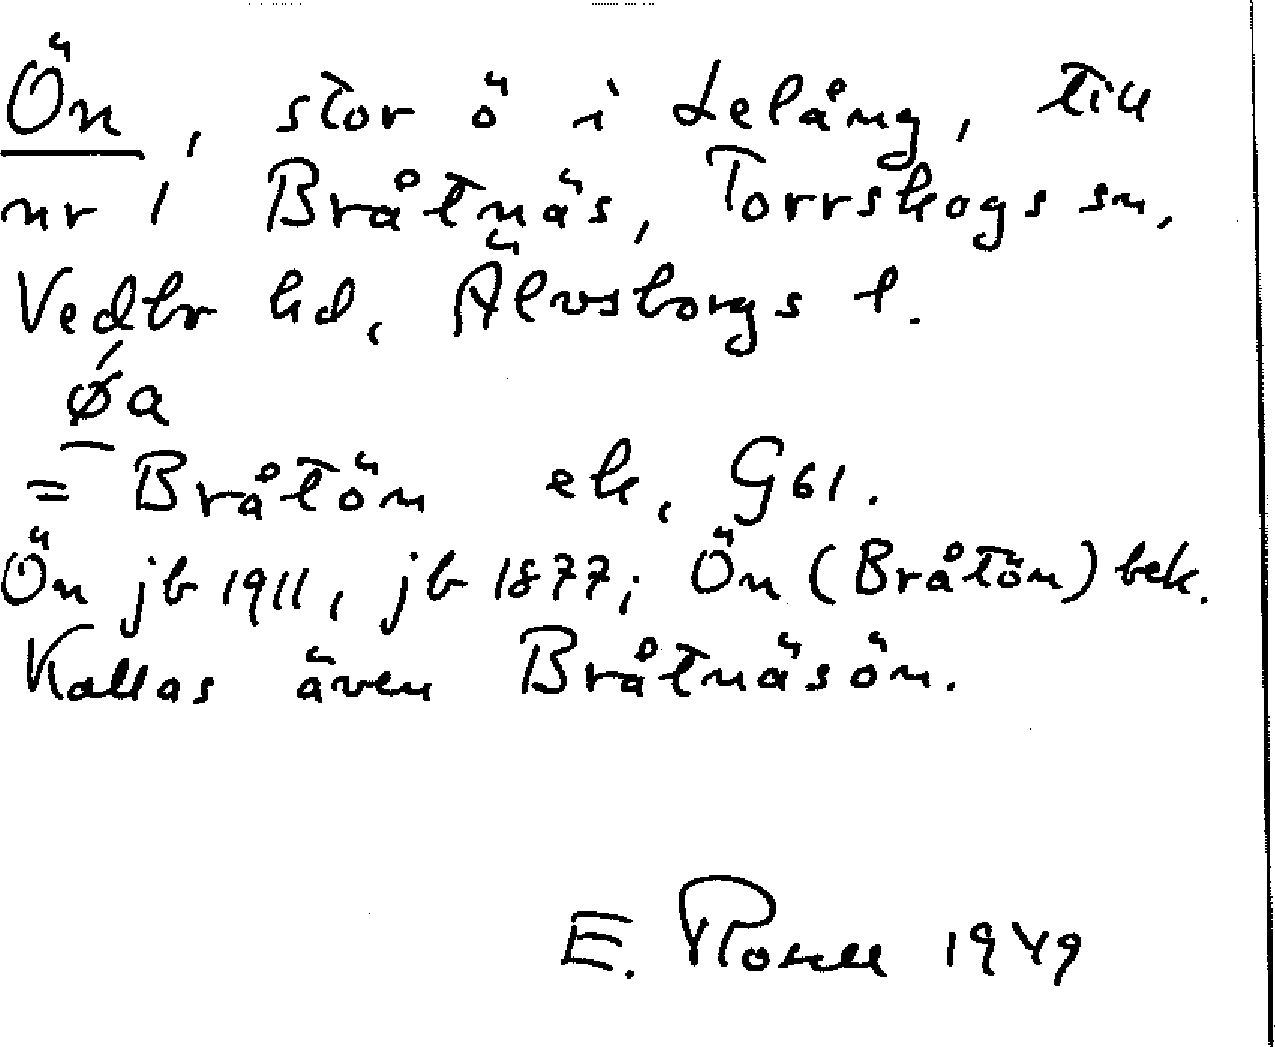 Ön, stor ö i Lelång, till
nr 1 Bråtnäs, Torrskogs sn,
Vedbo hd, Älvsborgs l.
ǿa
= Bråtön ek, G61.
Ön jb 1911, jb 1877; Ön (Bråtön) bek.
Kallas även Bråtnäsön.
E. Rosell 1949